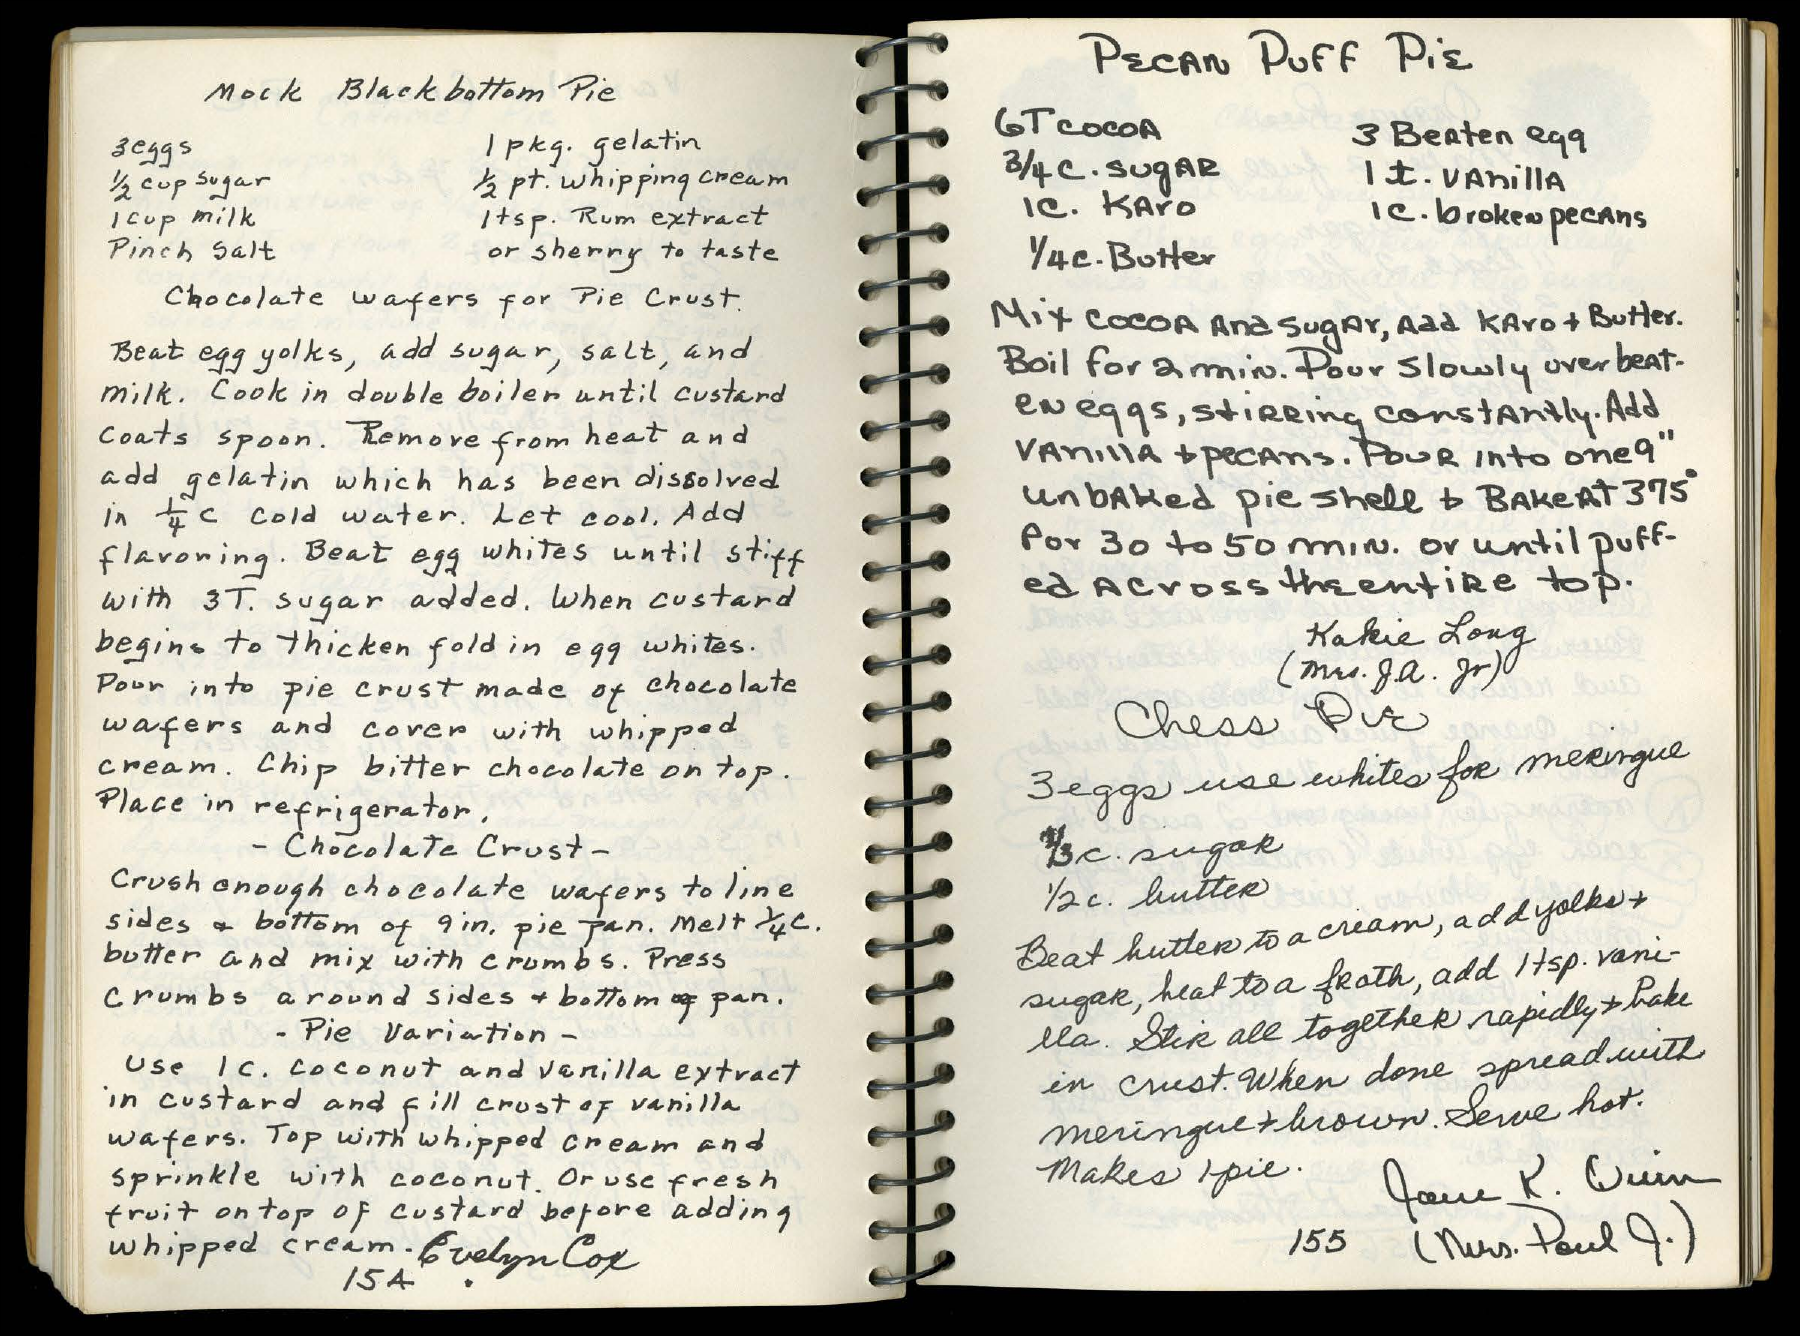 Mock Blackbottom Pie
3 eggs
½ cup sugar
1 cup milk
Pinch salt
1 pkg. gelatin
½ pt. whipping cream
1 tsp. Rum extract
or sherry to taste
Chocolate wafers for Pie Crust.
Beat egg yolks, add sugar, salt, and
milk. Cook in double boiler until custard
coats spoon. Remove from heat and
add gelatin which has been dissolved
in ¼ c cold water. Let cool. Add
flavoring. Beat egg whites until stiff
with 3T. sugar added. When custard
begins to thicken fold in egg whites.
Pour into pie crust made of chocolate
wafers and cover with whipped
cream. Chip bitter chocolate on top.
Place in refrigerator.
- Chocolate Crust -
Crush enough chocolate wafers to line
sides & bottom of 9 in. pie pan. Melt ¼ c.
butter and mix with crumbs. Press
crumbs around sides & bottom of pan.
- Pie Variation -
Use 1 c. coconut and vanilla extract
in custard and fill crust of vanilla
wafers. Top with whipped cream and
sprinkle with coconut. Or use fresh
fruit on top of custard before adding
whipped cream. Evelyn Cox
154
Pecan Puff Pie
6T cocoa
3/4 c. sugar
1c. Karo
1/4 c. Butter
3 Beaten egg
1 t. vanilla
1c. broken pecans
Mix cocoa and sugar, add Karo & Butter.
Boil for 2 min. Pour slowly over beat-
en eggs, stirring constantly. Add
vanilla & pecans. Pour into one 9"
unbaked pie shell & Bake at 375°
for 30 to 50 min. or until puff-
ed across the entire top.
Kakie Long
(Mrs. J.A. Jr)
Chess Pie
3 eggs use whites for meringue
c. sugar
1/2 c. butter
Beat butter to a cream, add yolks &
sugar, beat to a froth, add 1 tsp. vani-
lla. Stir all together rapidly & bake
in crust. When done spread with
meringue & brown. Serve hot.
Makes 1 pie.
Jane K. Quinn
(Mrs. Paul J.)
155